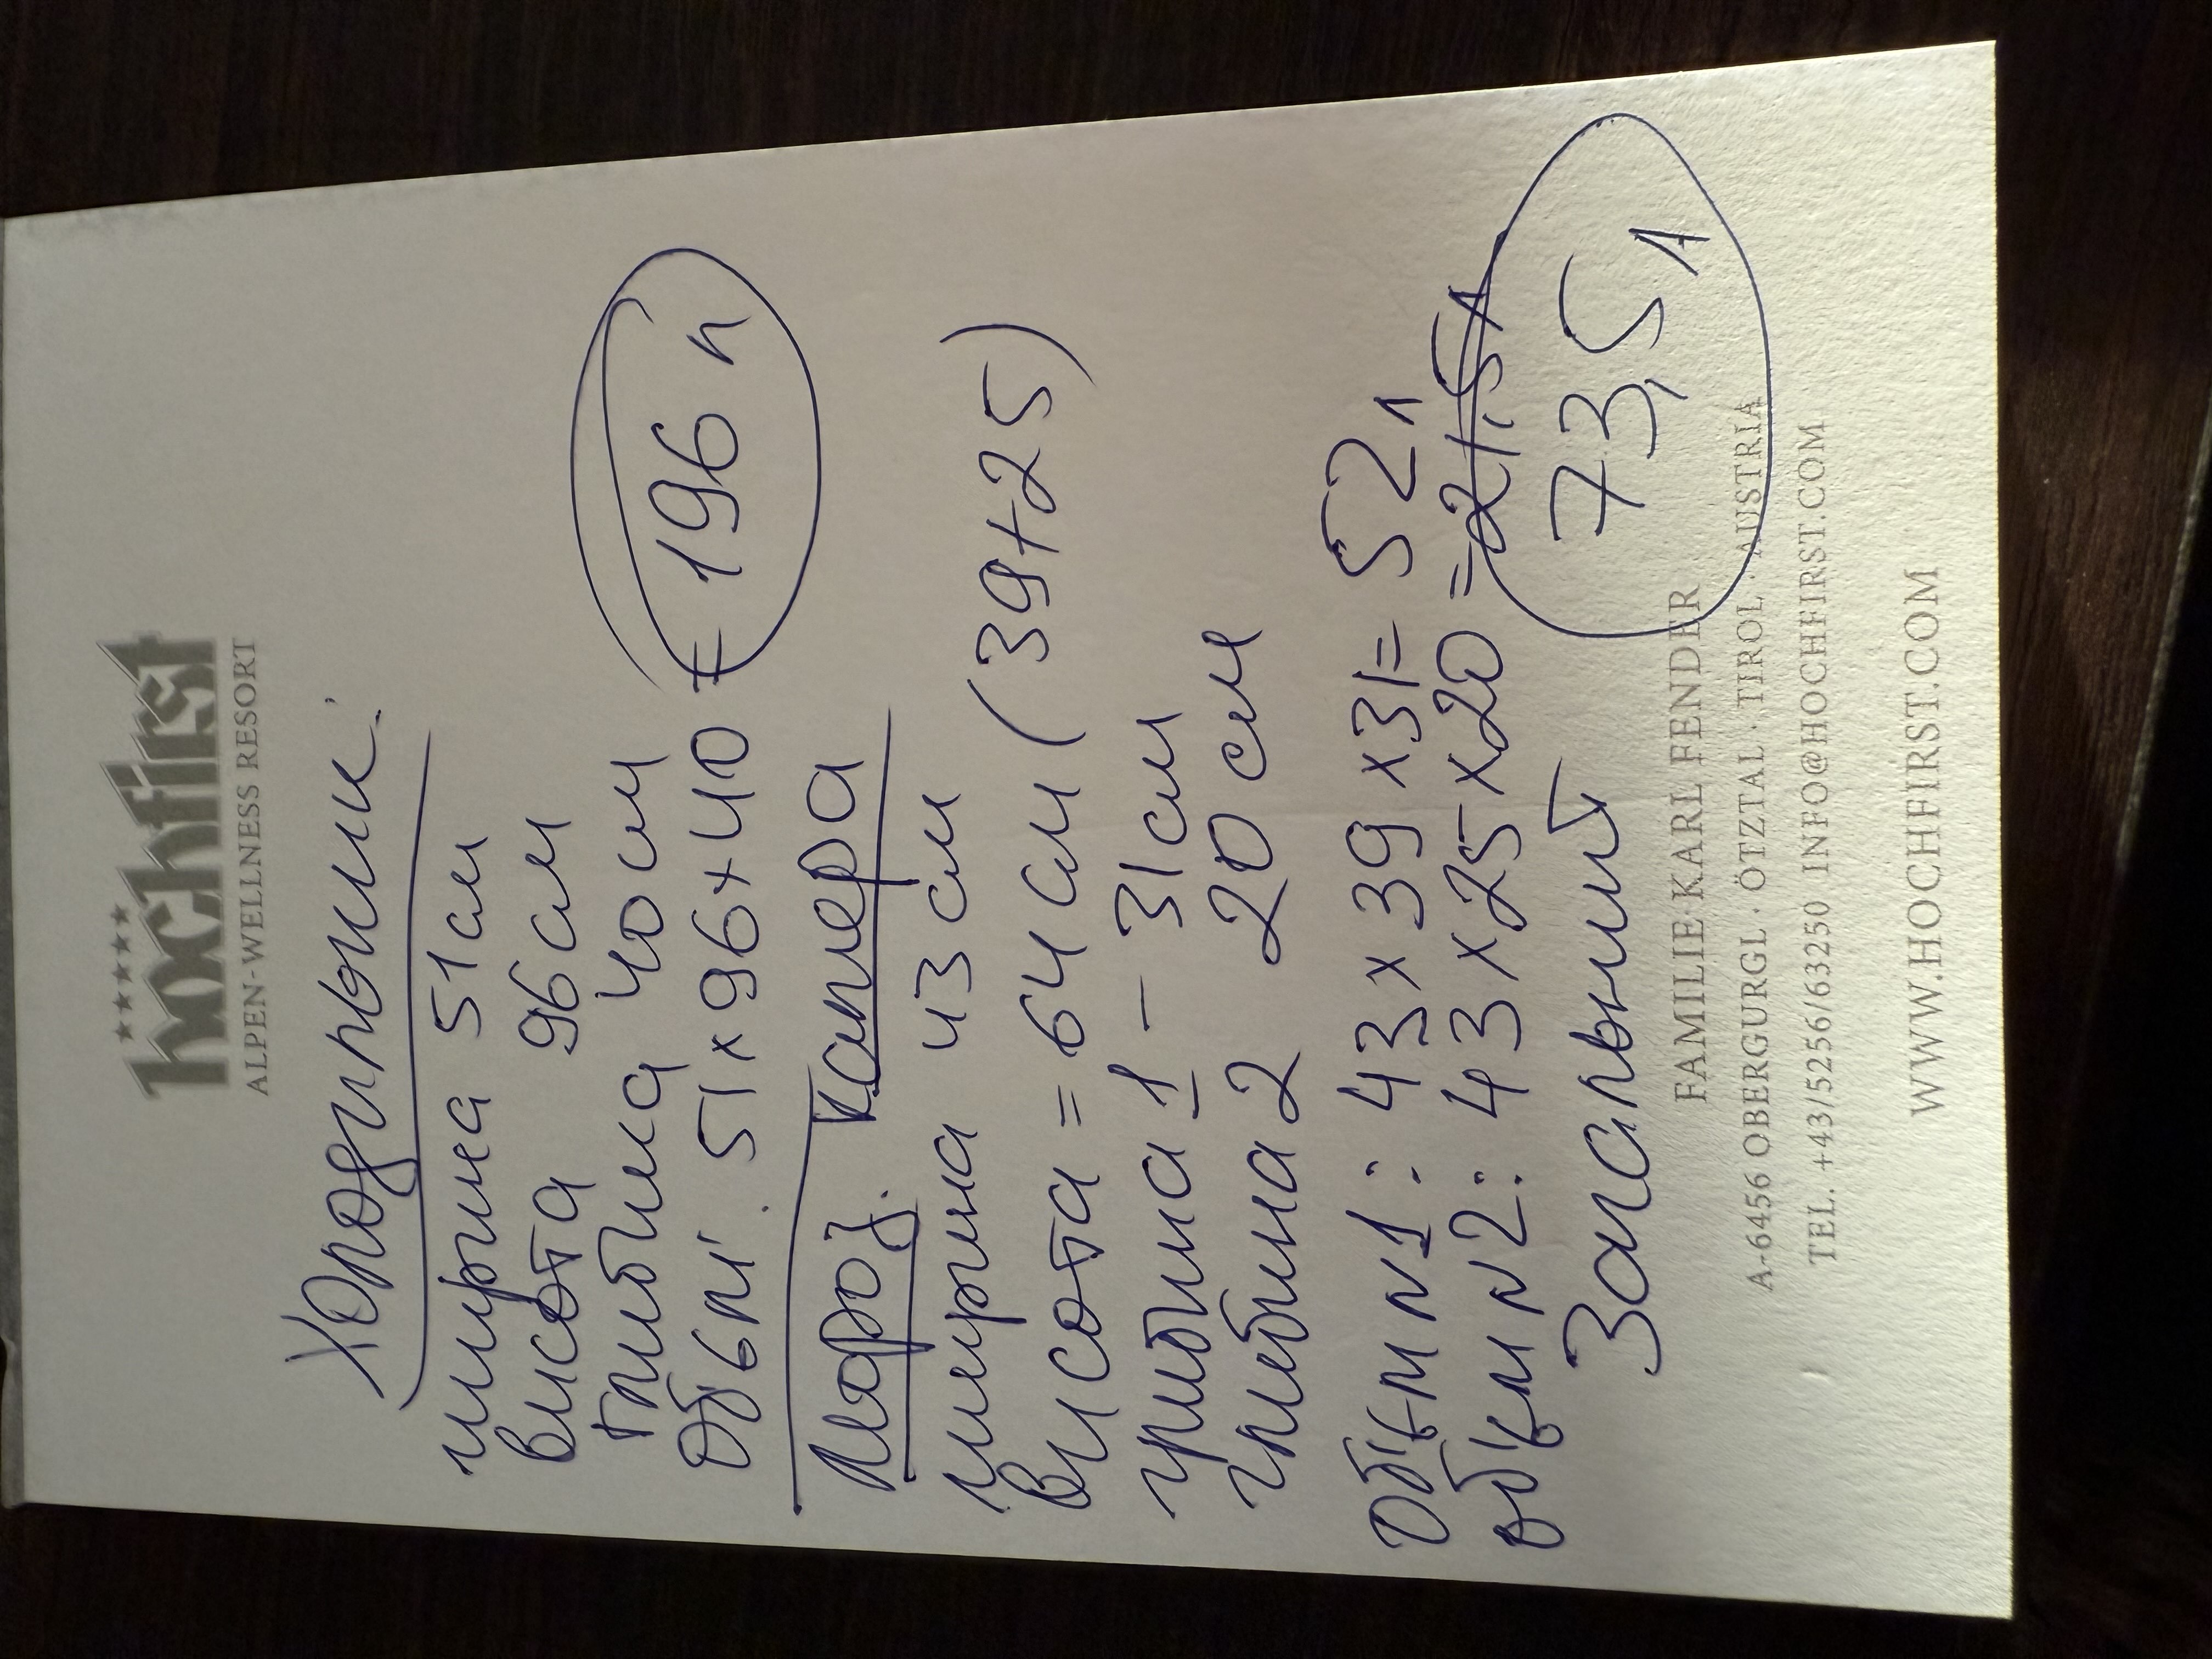 ★★★★★
hochfirst
ALPEN-WELLNESS RESORT
Холодильник:
ширина 51см
висота 96см
глибина 40см
Обьєм: 51x96x40 = 196 л
Мороз. камера
ширина 43 см
Висота = 64 см (39+25)
глибина 1 - 31см
глибина 2 20 см
Обʼєм N1: 43 x 39 x 31 = 52 л
обʼєм N2: 43 x 25 x 20 = 21,5 л
Загальний 73,5 л
FAMILIE KARL FENDER
A-6456 OBERGURGL · ÖTZTAL · TIROL · AUSTRIA
TEL. +43/5256/63250 INFO@HOCHFIRST.COM
WWW.HOCHFIRST.COM